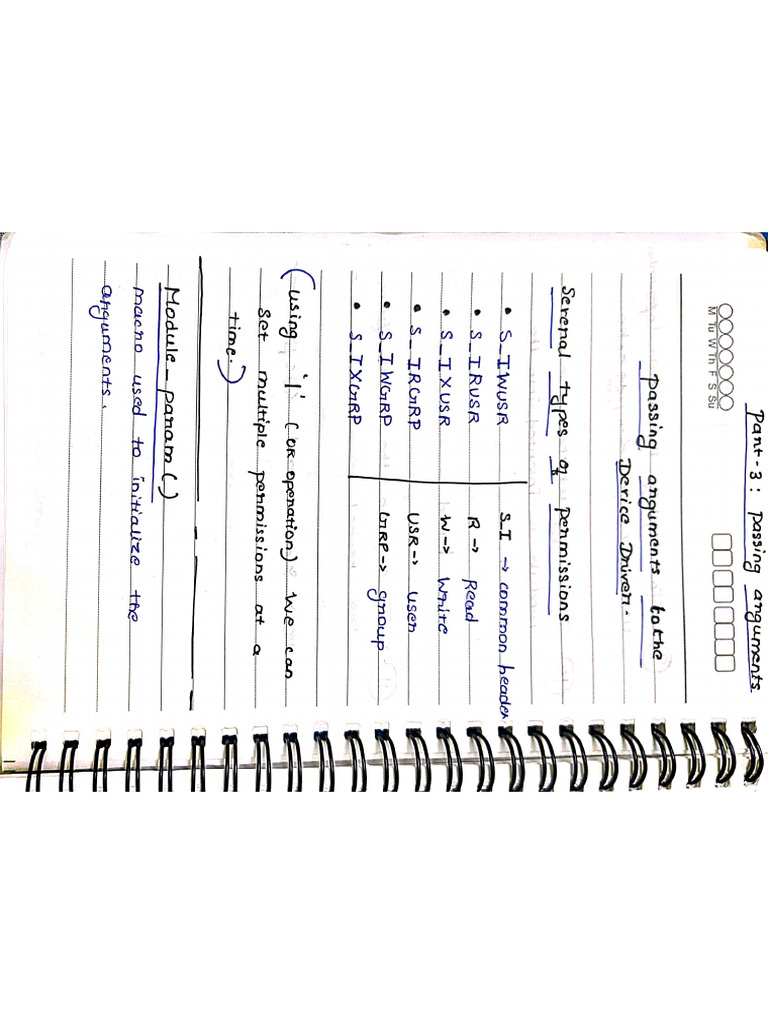 Part-3: passing arguments.
M Tu W Th F S Su
passing arguments to the
Device Driver.
Several types of permissions
• S_IWUSR
• S_IRUSR
• S_IXUSR
• S_IRGRP
• S_IWGRP
• S_IXGRP
S_I → common header
R → Read
W → Write
USR → user
GRP → group
(using '|' (OR operation) we can
set multiple permissions at a
time.)
Module_param()
macro used to initialize the
arguments.